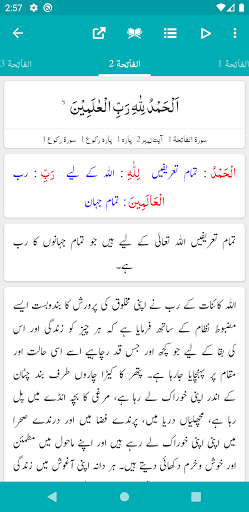 2:57
الفاتحة 1
الفاتحة 2
الفاتحة 3
اَلْحَمْدُ لِلّٰهِ رَبِّ الْعٰلَمِيْنَ ۙ
سورۃ الفاتحۃ 1 آیت نمبر 2 پارہ 1 پارہ رکوع 1 سورۃ رکوع 1
الْحَمْدُ : تمام تعریفیں لِلّٰهِ : اللہ کے لیے رَبِّ : رب
الْعَالَمِيْنَ : تمام جہان
تمام تعریفیں اللہ تعالیٰ کے لیے ہیں جو تمام جہانوں کا رب
ہے۔
اللہ کائنات کے رب نے اپنی مخلوق کی پرورش کا بندوبست ایسے
مضبوط نظام کے ساتھ فرمایا ہے کہ ہر چیز کو زندگی اور اس
کی بقا کے لیے جو کچھ اور جس قدر چاہیے اسے اسی حالت اور
مقام پر پہنچایا جا رہا ہے۔ پتھر کا کیڑا چاروں طرف بند چٹان
کے اندر اپنی خوراک لے رہا ہے، مرغی کا بچہ انڈے میں پل
رہا ہے، مچھلیاں دریا میں، پرندے فضا میں اور درندے صحرا
میں اپنی اپنی خوراک لے رہے ہیں اور اپنے ماحول میں مطمئن
اور خوش وخرم دکھائی دیتے ہیں۔ ہر دانہ اپنی آغوش میں زندگی